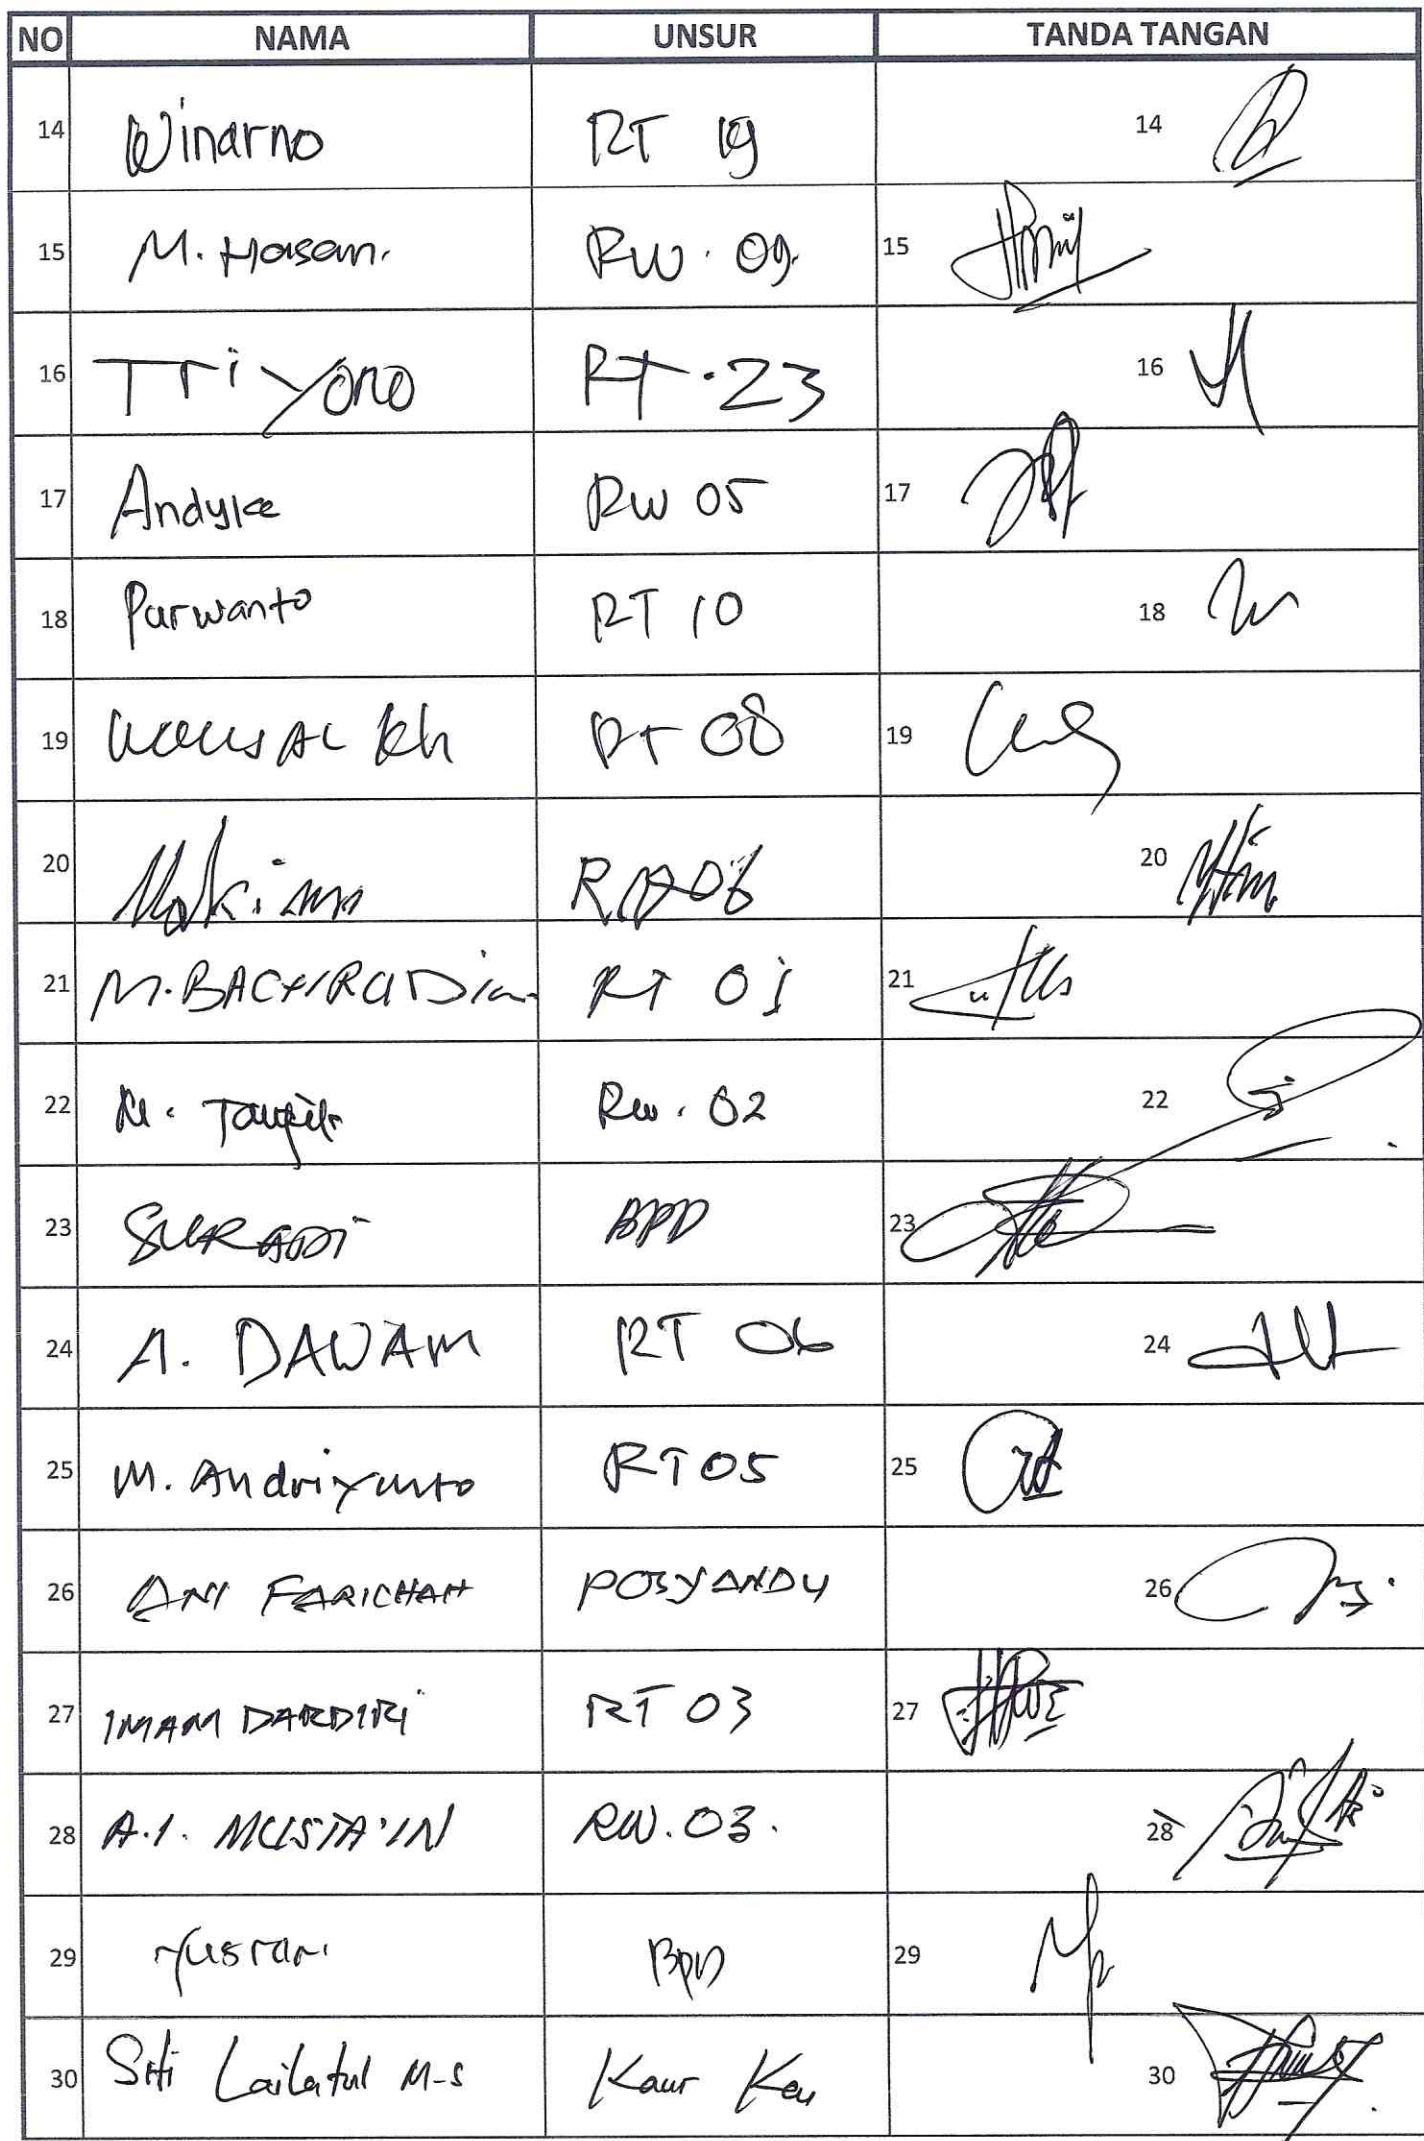 NO NAMA UNSUR TANDA TANGAN
14 Winarno RT 19 14
15 M. Hasan. RW. 09. 15
16 Triyono RT.23 16
17 Andyka RW 05 17
18 Purwanto RT 10 18
19 RT 08 19
20 20
21 RT 01 21
22 M. Taufik RW. 02 22
23 SUKADI BPD 23
24 A. DAWAM RT 06 24
25 M. Andriyanto RT 05 25
26 ANI FARICHAH POSYANDU 26
27 IMAM DARDIRI RT 03 27
28 A.1. MUSTA'IN RW. 03. 28
29 BPD 29
30 Siti Lailatul M-S Kaur Keu 30